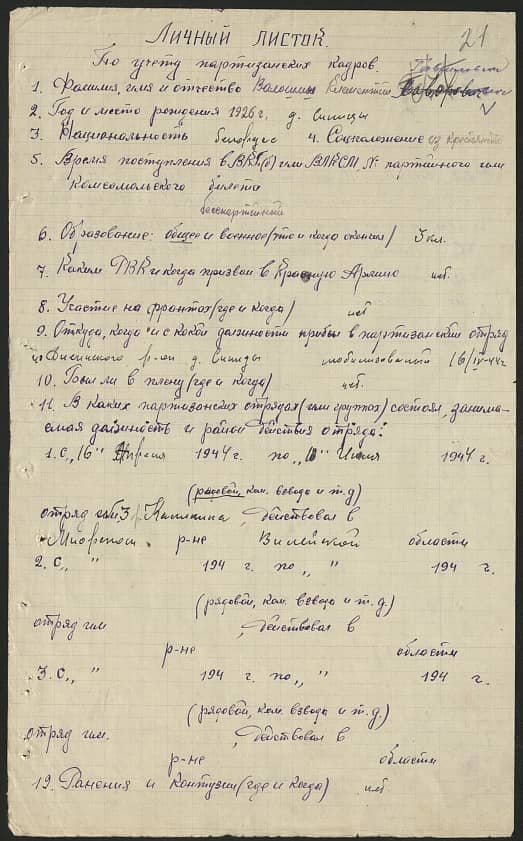 21
Личный листок.
По учету партизанских кадров
1. Фамилия, имя и отчество Волошин Климентий
2. Год и место рождения 1926 г. д. Синицы
3. Национальность белорус 4. Соцположение из крестьян
5. Время поступления в ВКП(б) или ВЛКСМ, № партийного или
комсомольского билета
беспартийный
6. Образование: общее и военное (что и когда окончил) 3 кл.
7. Каким РВК и когда призван в Красную Армию нет.
8. Участие на фронтах (где и когда) нет
9. Откуда, когда и с какой должности прибыл в партизанский отряд
р-он д. Синицы мобилизованный 16/IV-44 г
10. Был ли в плену (где и когда) нет.
11. В каких партизанских отрядах (или группах) состоял, занима-
емая должность и район действия отряда:
1. С „16" Апреля 1944 г. по „10" Июля 1944 г.
(рядовой, ком. взвода и т.д)
отряд им Калинина, действовал в
Мядельском р-не Вилейской области
2. С „ " 194 г. по „ " 194 г.
(рядовой, ком. взвода и т.д.)
отряд им , действовал в
р-не области
3. С „ " 194 г. по „ " 194 г.
(рядовой, ком. взвода и т.д.)
отряд им. , действовал в
р-не области
12. Ранения и контузии (где и когда) нет